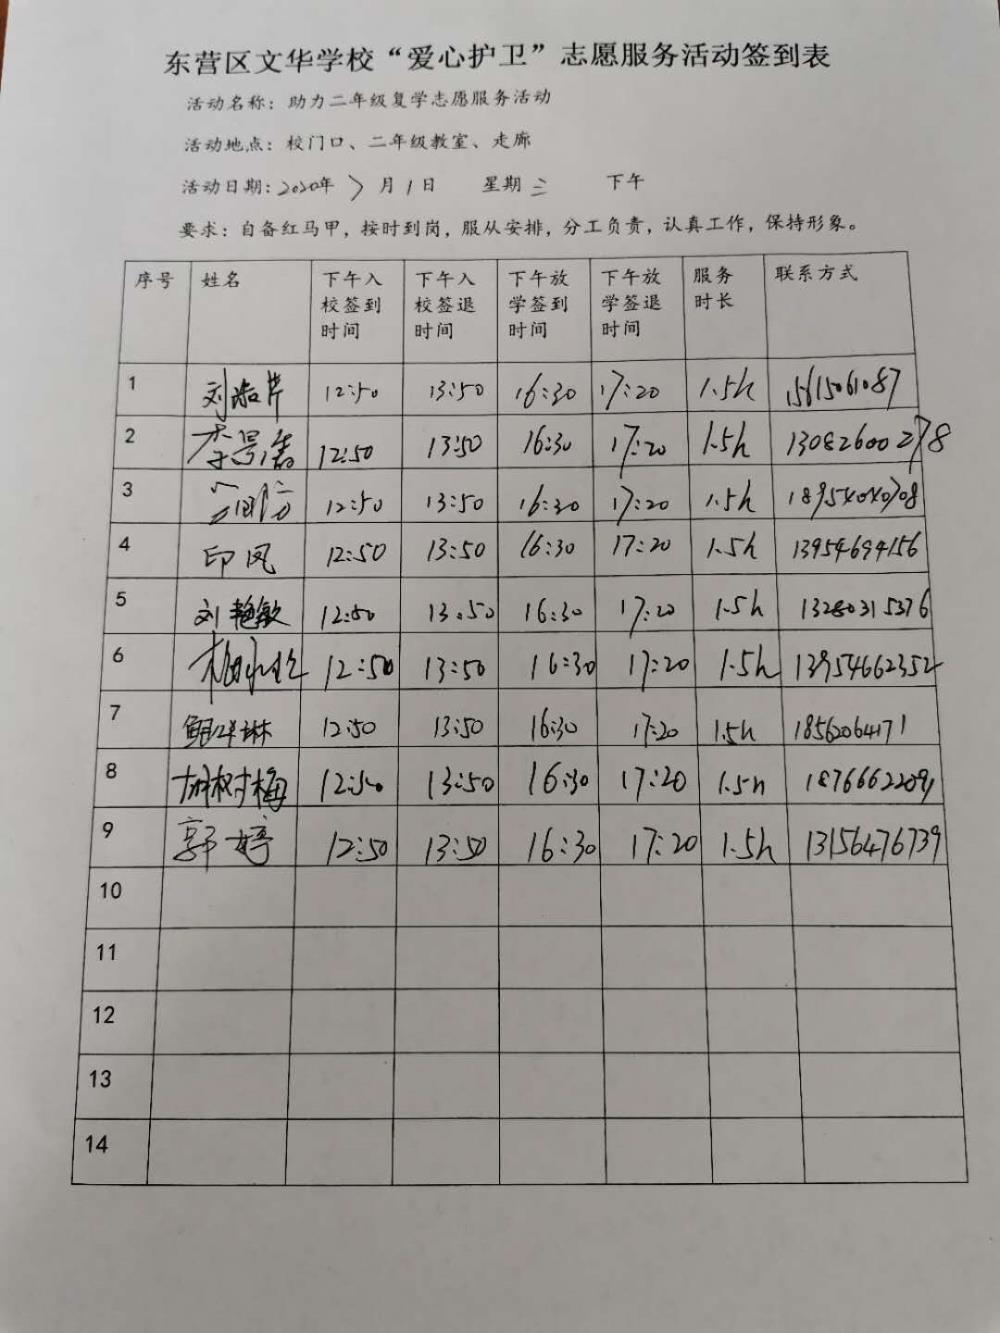 东营区文华学校“爱心护卫”志愿服务活动签到表
活动名称：助力二年级复学志愿服务活动
活动地点：校门口、二年级教室、走廊
活动日期：2020年 7月1日 星期三 下午
要求：自备红马甲，按时到岗，服从安排，分工负责，认真工作，保持形象。
序号 姓名 下午入校签到时间 下午入校签退时间 下午放学签到时间 下午放学签退时间 服务时长 联系方式
1 12:50 13:50 16:30 17:20 1.5h 15615061087
2 12:50 13:50 16:30 17:20 1.5h 13082600278
3 12:50 13:50 16:30 17:20 1.5h 18954040708
4 印凤 12:50 13:50 16:30 17:20 1.5h 13954694156
5 刘艳敏 12:50 13:50 16:30 17:20 1.5h 13280315376
6 12:50 13:50 16:30 17:20 1.5h 13954662352
7 12:50 13:50 16:30 17:20 1.5h 18562064171
8 胡树梅 12:50 13:50 16:30 17:20 1.5h 18766622091
9 郭婷 12:50 13:50 16:30 17:20 1.5h 13156476739
10
11
12
13
14